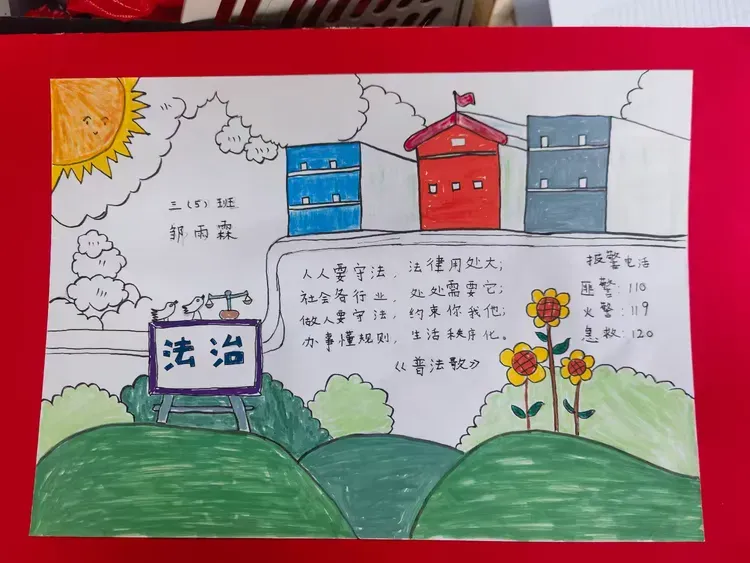 三(5)班
邹雨霖
人人要守法，法律用处大；
社会各行业，处处需要它；
做人要守法，约束你我他；
办事懂规则，生活秩序化。
《普法歌》
报警电话
匪警：110
火警：119
急救：120
法治